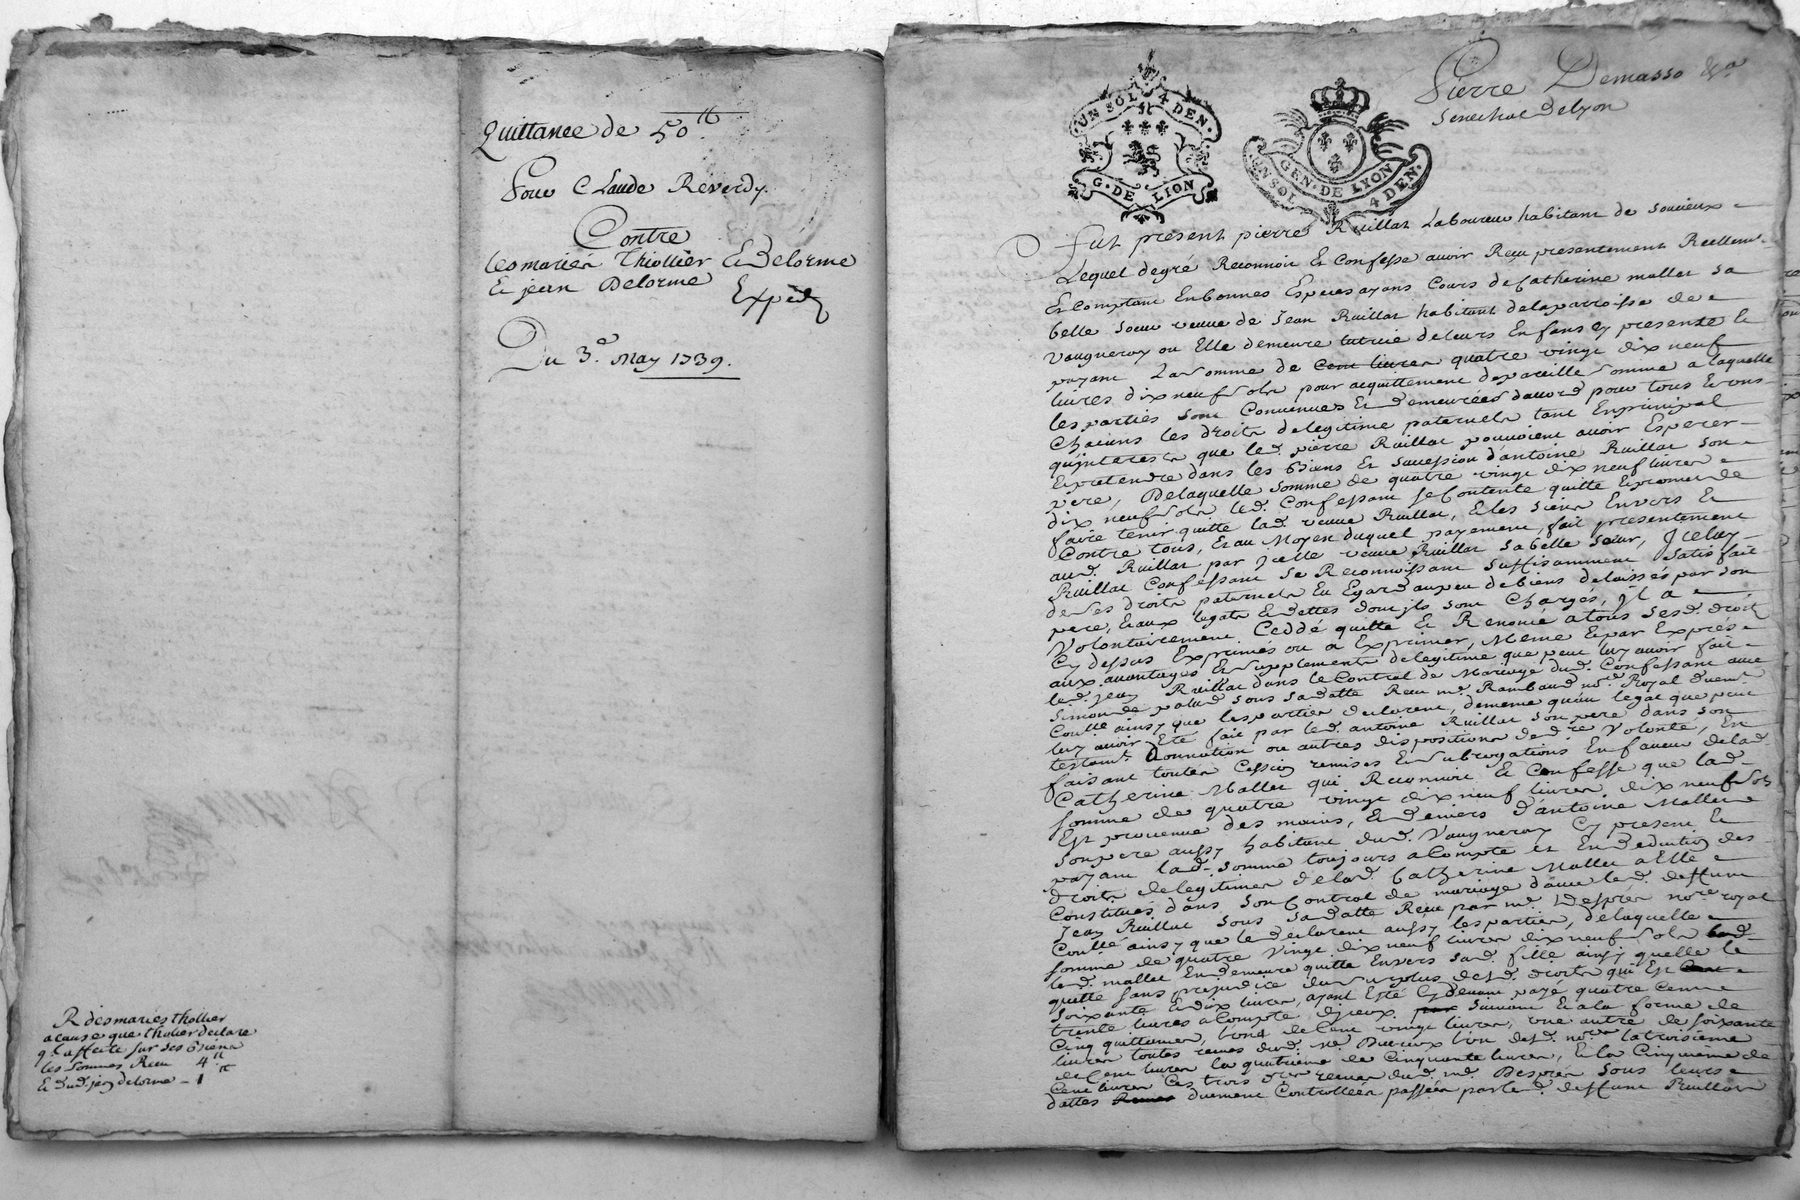 Quittance de 50tt
Pour Claude Reverdy
Contre
les mariés Thiollier & Delorme
& jean Delorme
Expéd
Du 3e May 1739.
R des mariés thollier
a cause que tholier declare
les sommes Reçu 4tt
& dud. jean delorme - 1tt
Pierre Demasso &a
Senechal de lyon
UN SOL 4 DEN.
G. DE LION
GEN. DE LYON
UN SOL 4 DEN.
Fut present pierre Ruillat Laboureur habitant de Soucieux
Lequel degré Reconnoit Et Confesse avoir Reçu presentement Reellem.
Et Comptant En bonnes Especes ayans Cours de Catherine mallet sa
belle soeur veuve de Jean Ruillat habitant de la parroisse de
vaugneray ou Elle demeure tutrice de leurs Enfans Cy presente &
payant La somme de Cent livres quatre vingt dix neuf
livres dix neuf sols pour acquittement de pareille somme a laquelle
les parties sont Convenues Et demeurées daccord pour tous Et uns
Chacuns les droits de legitime paternels tant En principal
qu'interests que led. pierre Ruillat pouvoient avoir Esperer
Et pretendre dans les Biens Et succession d'antoine Ruillat son
pere, De laquelle somme de quatre vingt dix neuf livres
dix neuf sols led. Confessant se Contente quitte Et promet de
faire tenir quitte lad. veuve Ruillat, & les siens Envers Et
Contre tous, Et au Moyen duquel payement, fait presentement
aud. Ruillat par Jcelle veuve Ruillat sa belle soeur, Jceluy
Ruillat Confessant se Reconnoissant suffisamment satisfait
de ses droits paternels Eu Egard au peu de biens delaissés par son
pere, & aux legats & dettes dont jls sont Chargés, jl a
Volontairement Ceddé quitté Et Renoncé a tous sesd. droits
Cy dessus Exprimés ou a Exprimer, Meme & par Exprés
aux avantages & supplements de legitime que peut luy avoir fait
led. jean Ruillat dans le Contrat de Mariage dud. Confessant avec
Simonde palud sous sa datte Reçu me. Rambaud nore. Royal duemt.
Coullé ainsy que les parties declarent, de meme qu'au legat que peut
luy avoir Eté fait par led. antoine Ruillat son pere dans son
testamt. Donnation ou autres dispositions de dre volonté, En
faisant toutes Cession remises & subrogations En faveur de lad.
Catherine Mallet qui Reconnoit & Confesse que lad.
somme de quatre vingt dix neuf livres dix neuf sols
Est provenue des mains, & deniers d'antoine Mallet
son pere aussy habitant dud. Vaugneray Cy present Et
payant lad. somme toujours a Compte et En deduction des
droits de legitimes de lad. Catherine Mallet a Elle
Constitués dans son Contrat de mariage d'avec led. deffunt
Jean Ruillat sous sa datte Reçu par me. Desprès nore. royal
Coullé ainsy que le declarent aussy les parties, de laquelle
somme de quatre vingt dix neuf livres dix neuf sols
led. mallet En demeure quitte Envers sad. fille ainsy quelle le
quitte sans prejudice du surplus desd. droits qui Est
soixante & dix livres, ayant Esté Cy devant payé quatre Cents
trente livres a Compte d'jceux suivant & a la forme de
Cinq quittances, l'une de Cent vingt livres, une autre de soixante
livres toutes reçues dud. Me. la troisième
de Cent livres la quatrieme de Cinquante livres, & la Cinquieme de
Cent livres Ces trois dres reçues dud. me. Desprès sous leurs
dattes duement Controllées passées par led. deffunt Ruillat